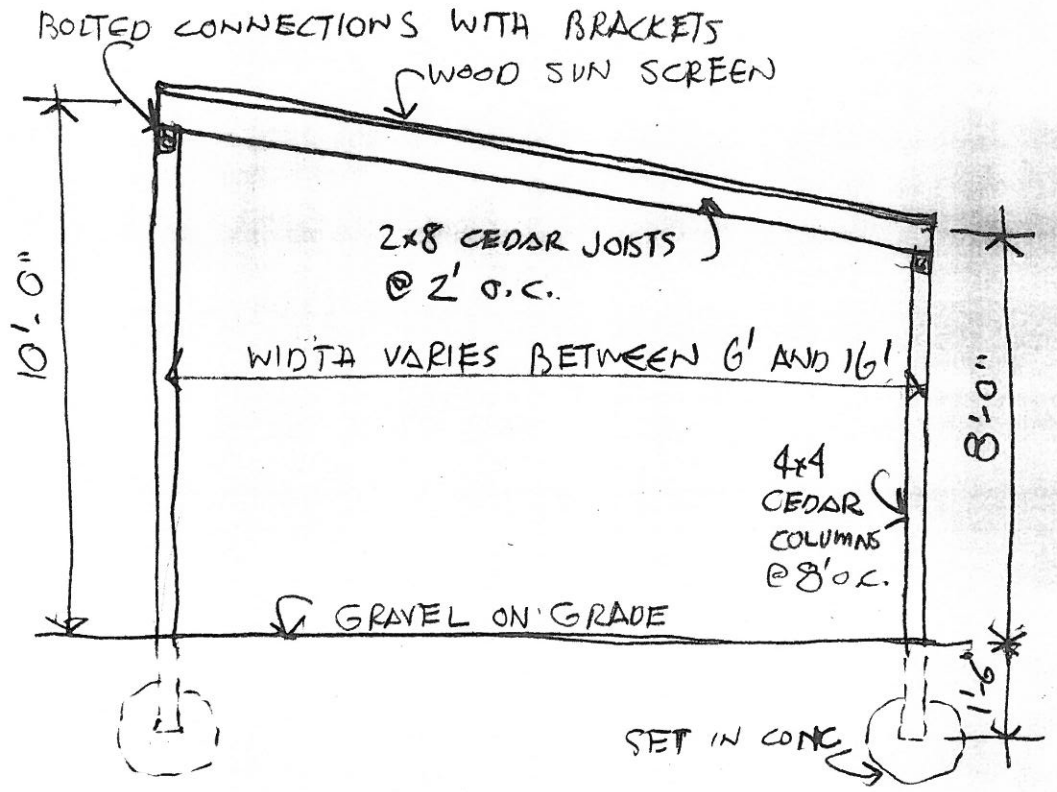 BOLTED CONNECTIONS WITH BRACKETS
WOOD SUN SCREEN
2x8 CEDAR JOISTS
@ 2' O.C.
10'-0"
WIDTH VARIES BETWEEN 6' AND 16'
8'-0"
4x4
CEDAR
COLUMNS
@ 8' O.C.
GRAVEL ON GRADE
1'-6"
SET IN CONC